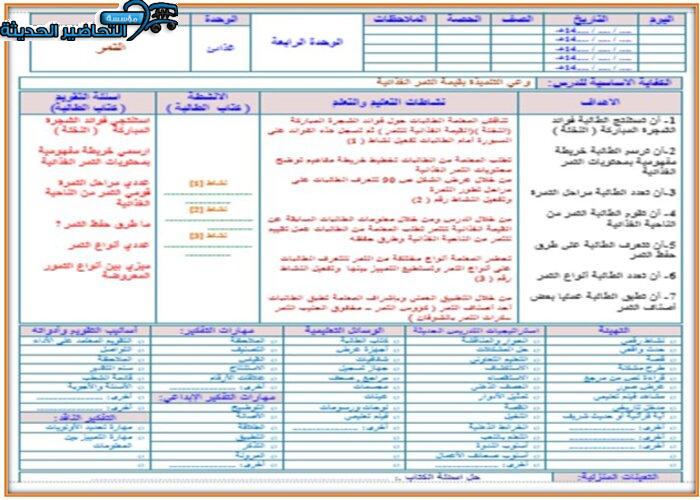 مؤسسة
التحاضير الحديثة
اليوم
التاريخ
الصف
الحصة
الملاحظات
الوحدة الرابعة
الوحدة
غذائي
التمر
... / ... / ...14هـ
... / ... / ...14هـ
... / ... / ...14هـ
... / ... / ...14هـ
الكفاية الأساسية للدرس:
وعي التلميذة بقيمة التمر الغذائية
الأهداف
نشاطات التعليم والتعلم
الأنشطة
( كتاب الطالبة )
أسئلة التقويم
( كتاب الطالبة )
1- أن تستنتج الطالبة فوائد
الشجرة المباركة ( النخلة )
2- أن ترسم الطالبة خريطة
مفهومية بمحتويات التمر
الغذائية
3- أن تعدد الطالبة مراحل التمرة
4- أن تقوم الطالبة التمر من
الناحية الغذائية
5- أن تتعرف الطالبة على طرق
حفظ التمر
6- أن تعدد الطالبة أنواع التمر
7- أن تطبق الطالبة عمليا بعض
أصناف التمر
تناقش المعلمة الطالبات حول فوائد الشجرة المباركة
(النخلة) و(القيمة الغذائية للتمر) ثم تسجل هذه الفوائد على
السبورة أمام الطالبات تفعيل نشاط ( 1 )
تطلب المعلمة من الطالبات تخطيط خريطة مفاهيم توضح
محتويات التمر الغذائية
من خلال عرض الشكل ص 90 تتعرف الطالبات على
مراحل تطور التمرة
وتفعيل النشاط رقم ( 2 )
من خلال الدرس ومن خلال معلومات الطالبات السابقة عن
القيمة الغذائية للتمر تطلب المعلمة من الطالبات عمل تقييم
للتمر من الناحية الغذائية وطرق حفظه
تحضر المعلمة أنواع مختلفة من التمر لتتعرف الطالبات
على أنواع التمر وتستطيع التمييز بينها وتفعيل النشاط
رقم ( 3 )
من خلال التطبيق العملي وبإشراف المعلمة تطبق الطالبات
أحد أصناف التمر
نشاط [1]
نشاط [2]
نشاط [3]
استنتجي فوائد الشجرة
المباركة ( النخلة )
ارسمي خريطة مفهومية
بمحتويات التمر الغذائية
عددي مراحل التمرة
قومي التمر من الناحية
الغذائية
ما طرق حفظ التمر ؟
عددي أنواع التمر
ميزي بين أنواع التمور
المعروضة
التهيئة
نشاط رقمي
حدث واقعي
قصة
طرح مشكلة
قراءة نص من مرجع
عرض صور
مشاهد فيلم تعليمي
مدخل تاريخي
آية قرآنية أو حديث شريف
أخرى: ............
استراتيجيات التدريس الحديثة
الحوار والمناقشة
حل المشكلات
التعليم التعاوني
الاستقصاء
الاستكشاف
العصف الذهني
تمثيل الأدوار
القصة
التخيل
الخرائط الذهنية
التعلم باللعب
أسلوب الندوة
أسلوب صحائف الأعمال
أخرى: ............
الوسائل التعليمية
كتاب الطالبة
أجهزة عرض
شفافيات
جهاز تسجيل
مراجع وصحف
مجسمات
عينات
لوحات ورسومات
فيلم تعليمي
أخرى: ............
مهارات التفكير:
الملاحظة
التصنيف
القياس
الاستنتاج
علاقات الأرقام
أخرى: ............
مهارات التفكير الإبداعي:
التوضيح
الأصالة
الطلاقة
التطبيق
التذكر
المرونة
أخرى: ............
أساليب التقويم وأدواته
التقويم المعتمد على الأداء
التواصل
الملاحظة
سلم التقدير
قائمة الشطب
الأسئلة والأجوبة
أخرى: ............
التفكير الناقد:
مهارة تحديد الأولويات
مهارة التمييز بين
المعلومات
التعيينات المنزلية:
حل أسئلة الكتاب